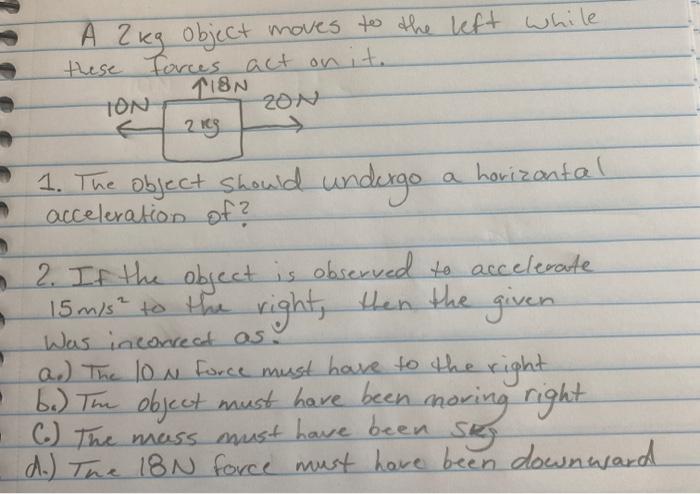 A 2kg object moves to the left while
these forces act on it.
↑18N
10N 20N
2kg
1. The object should undergo a horizontal
acceleration of?
2. If the object is observed to accelerate
15m/s² to the right, then the given
was incorrect as:
a.) The 10 N force must have to the right
b.) The object must have been moving right
C.) The mass must have been 5kg
d.) The 18N force must have been downward